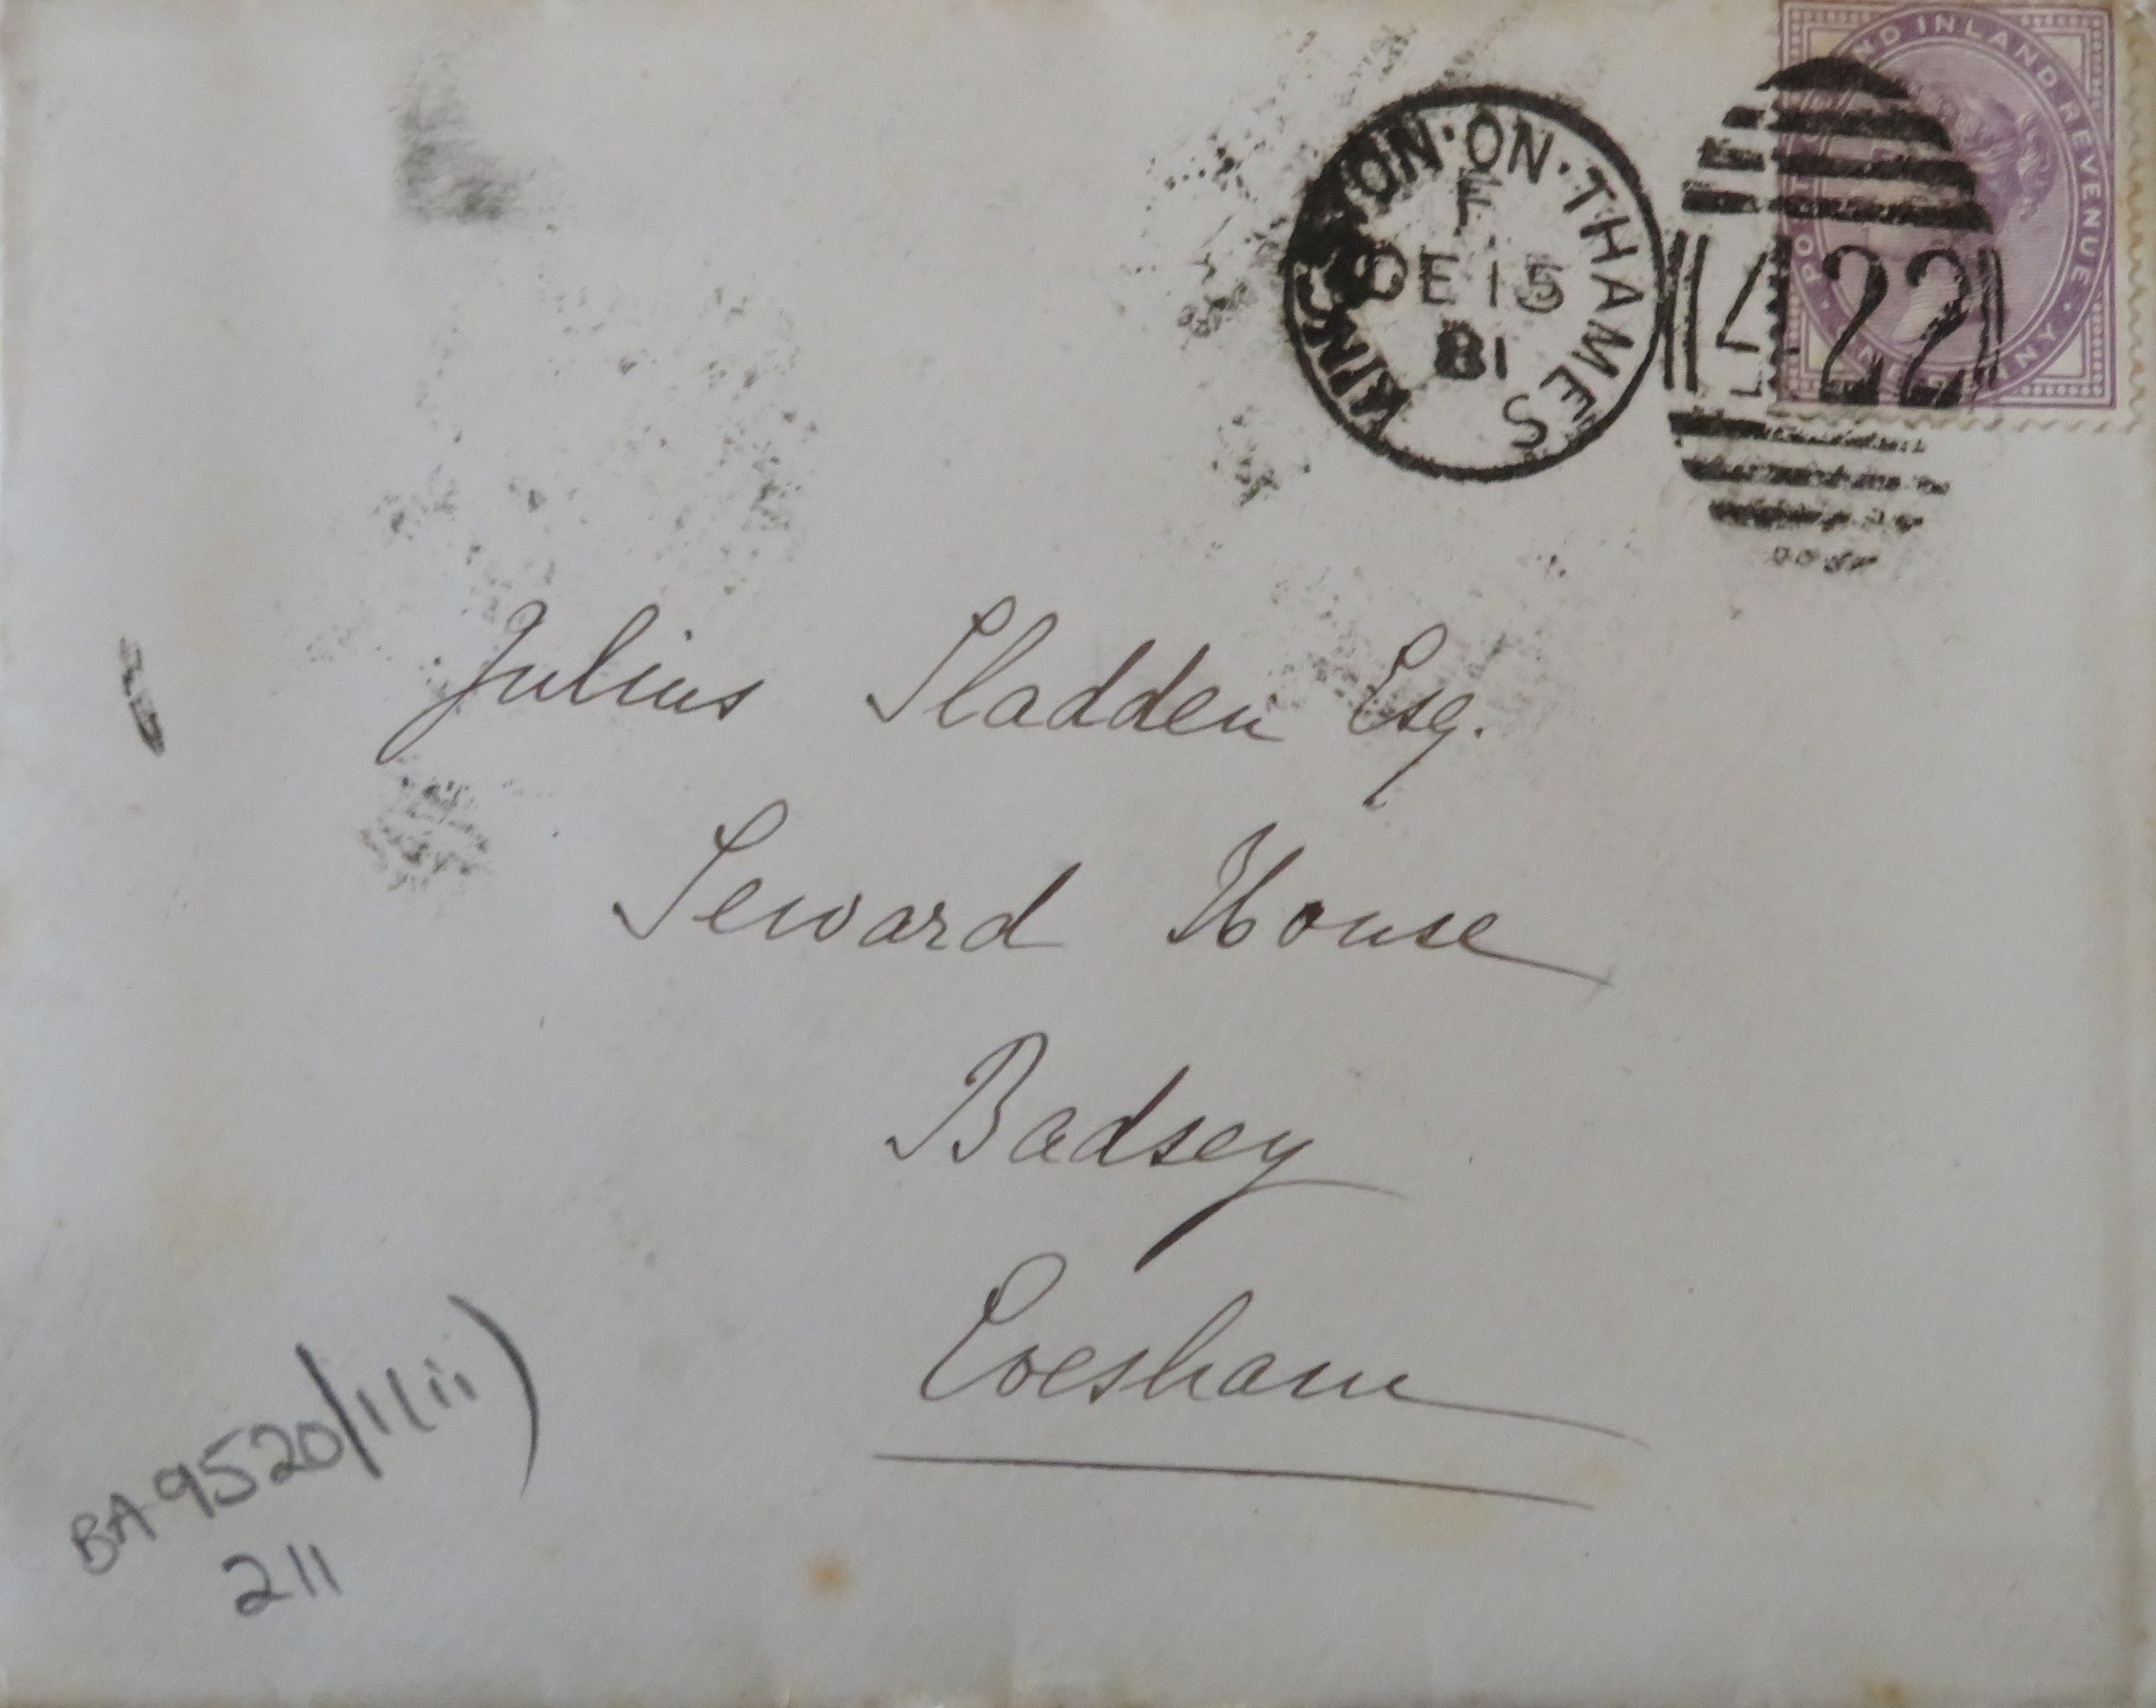 POSTAGE AND INLAND REVENUE
ONE PENNY
KINGSTON·ON·THAMES
E
DE 15
81
422
Julius Sladden Esq.
Seward House
Badsey
Evesham
BA 9520/11(ii)
211